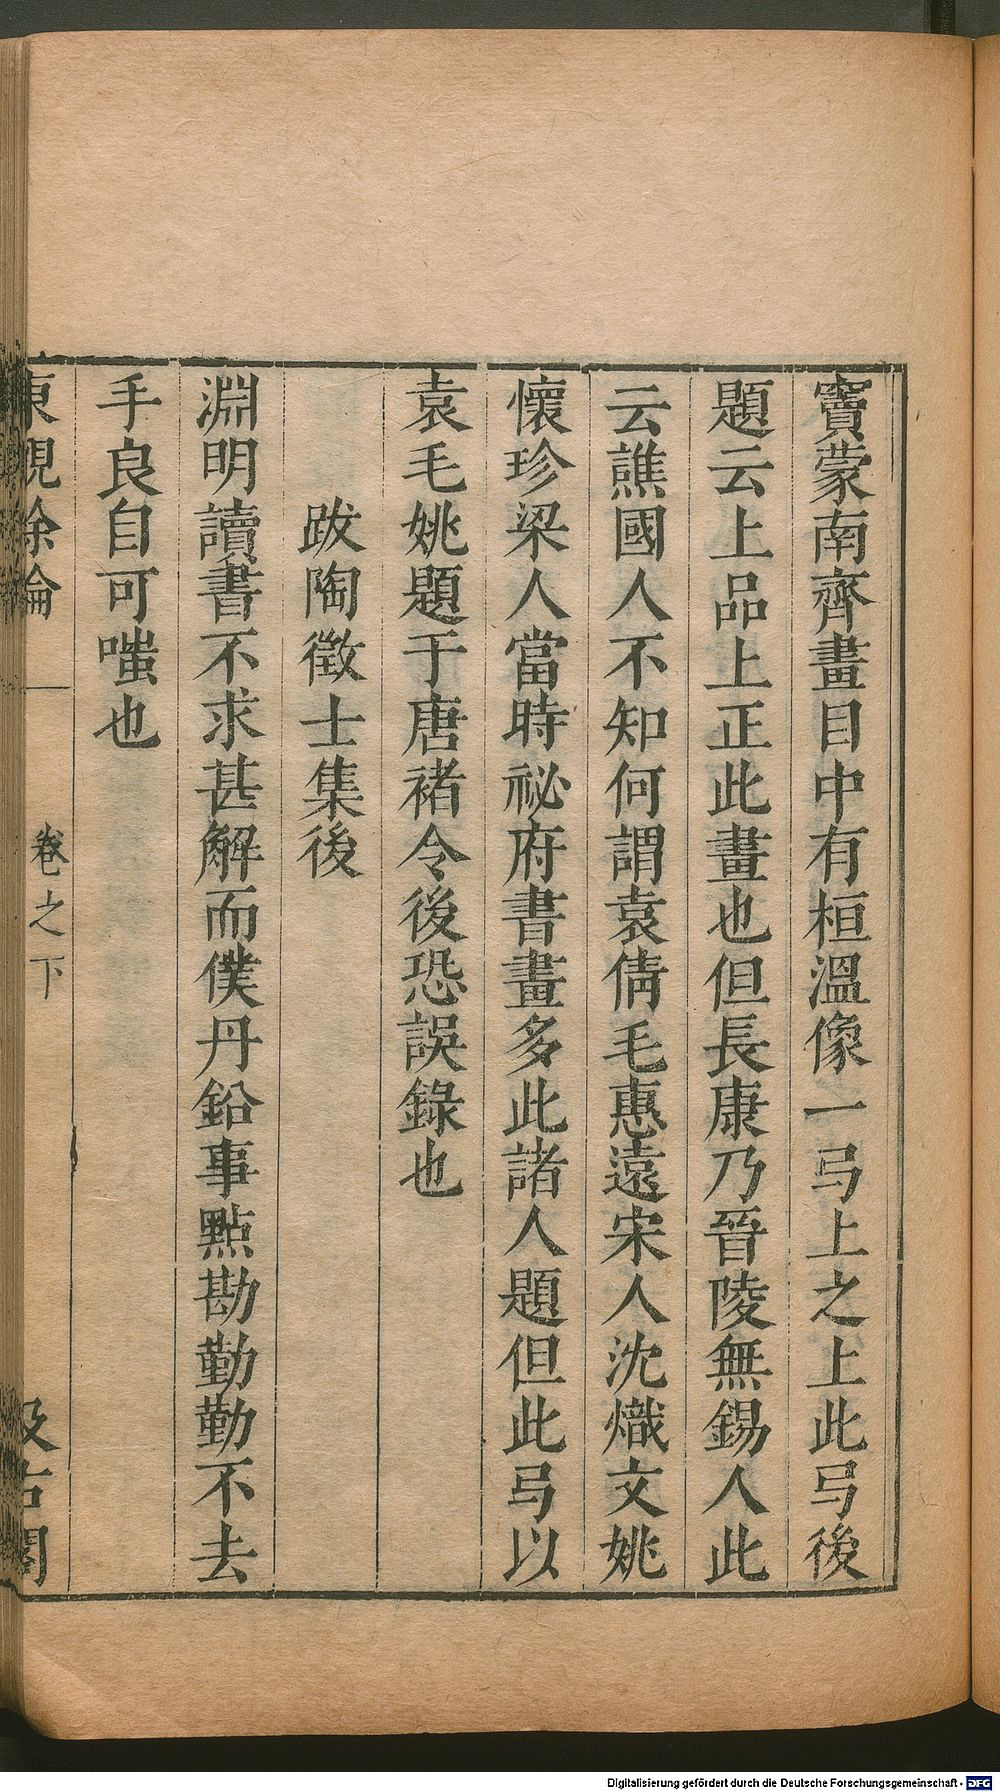 竇蒙南齊畫目中有桓溫像一弓上之上此弓後
題云上品上正此畫也但長康乃晉陵無錫人此
云譙國人不知何謂袁倩毛惠遠宋人沈熾文姚
懷珍梁人當時祕府書畫多此諸人題但此弓以
袁毛姚題于唐褚令後恐誤錄也
跋陶徵士集後
淵明讀書不求甚解而僕丹鉛事點勘勤勤不去
手良自可嗤也
東觀餘論
卷之下
汲古閣
Digitalisierung gefördert durch die Deutsche Forschungsgemeinschaft - DFG